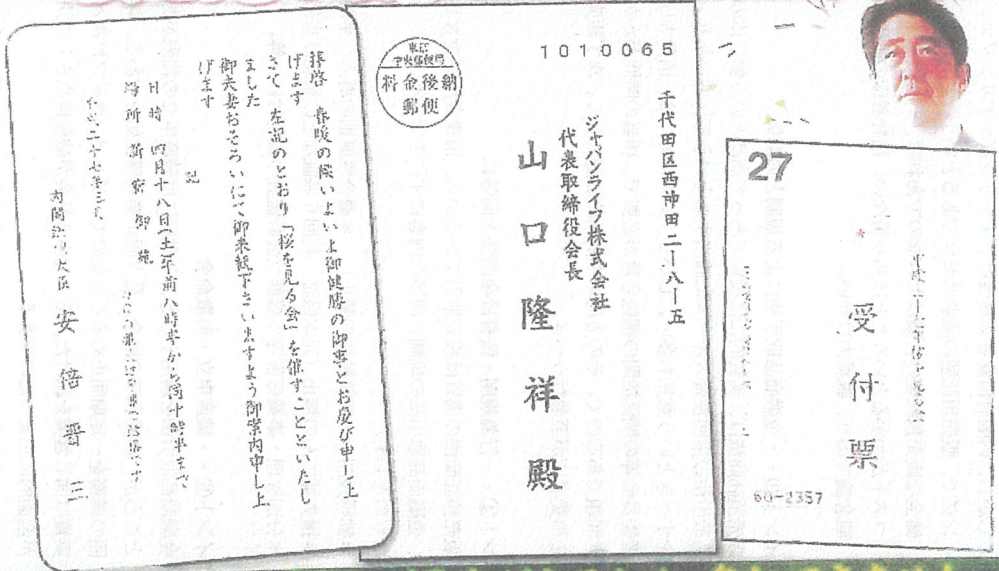 拝啓 春暖の候いよいよ御健勝の御事とお慶び申し上
げます
さて 左記のとおり「桜を見る会」を催すことといたし
ました
御夫妻おそろいにて御来観下さいますよう御案内申し上
げます
記
日時 四月十八日(土)午前八時半から同十時半まで
場所 新宿御苑
平成二十七年三月
内閣総理大臣 安倍晋三
東京
中央郵便局
料金後納
郵便
1010065
千代田区西神田二ー八ー五
ジャパンライフ株式会社
代表取締役会長
山口隆祥殿
27
受付票
60-2357